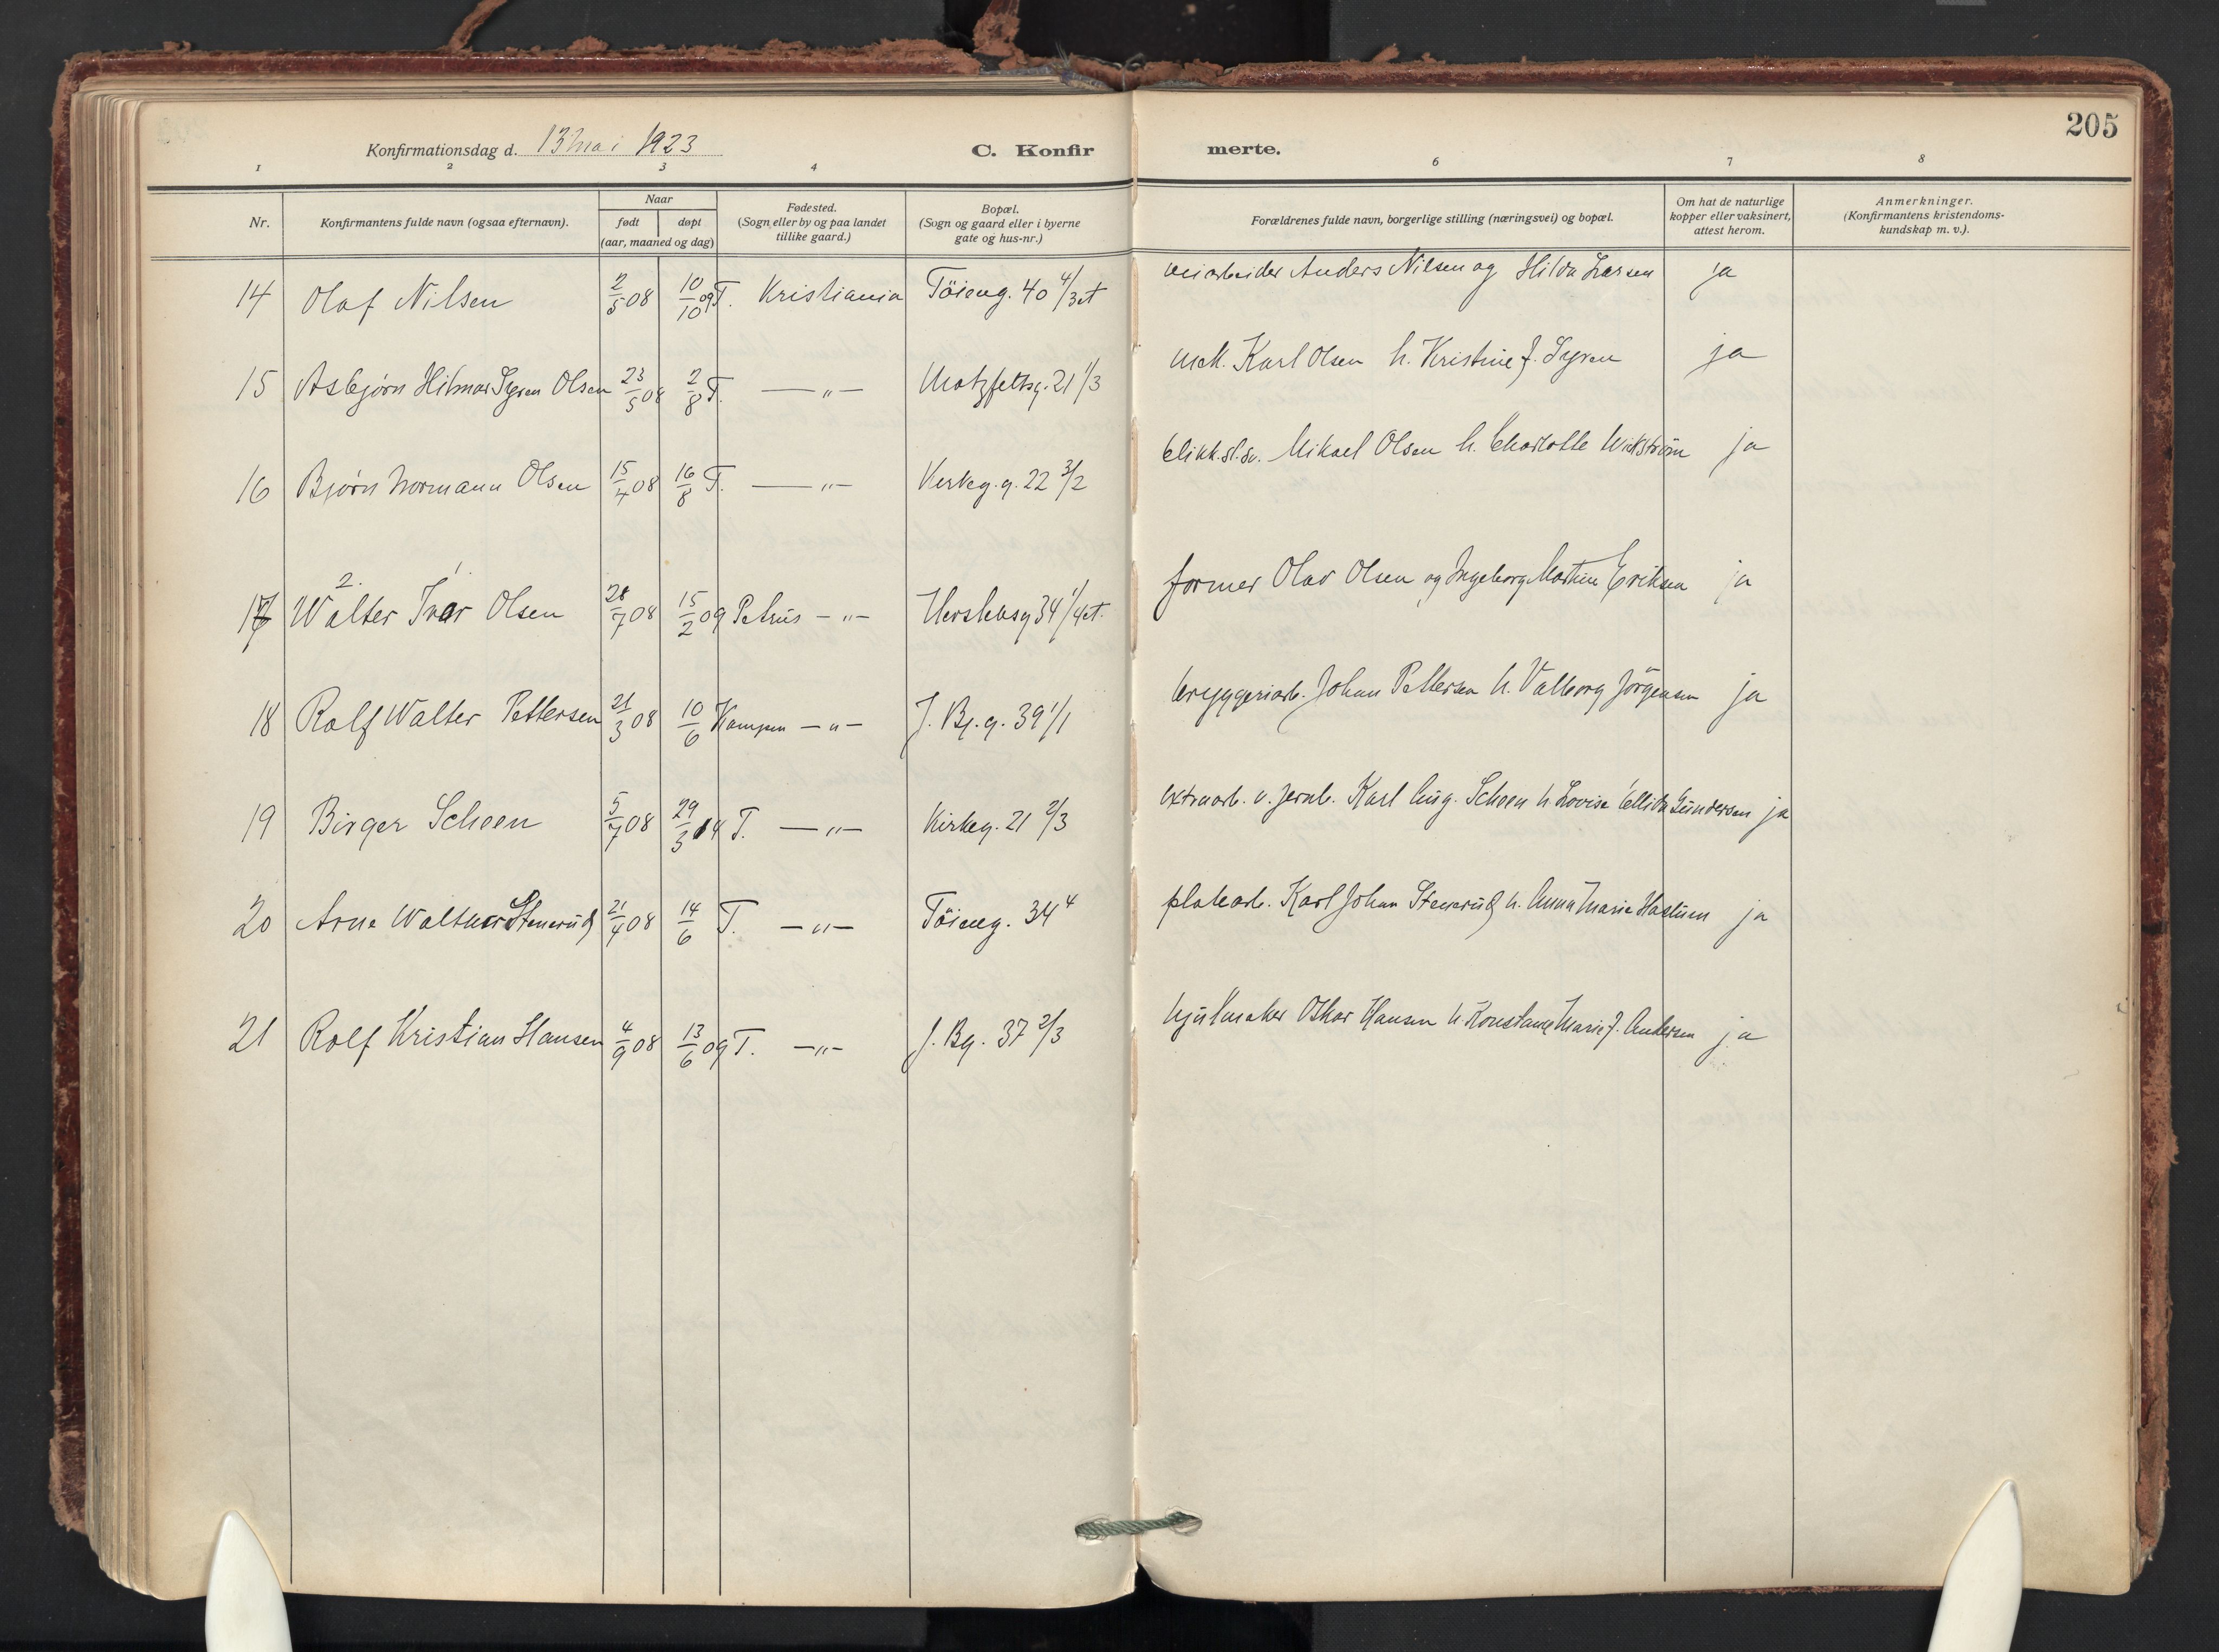 205
Konfirmationsdag d. 13 mai 1923 C. Konfir merte.
1 2 3 4 6 7 8
Nr. Konfirmantens fulde navn (ogsaa efternavn). Naar født døpt (aar, maaned og dag) Fødested. (Sogn eller by og paa landet tillike gaard.) Bopæl. (Sogn og gaard eller i byerne gate og hus-nr.) Forældrenes fulde navn, borgerlige stilling (næringsvei) og bopæl. Om hat de naturlige kopper eller vaksinert, attest herom. Anmerkninger. (Konfirmantens kristendoms- kundskap m. v.).
14 Olaf Nilsen 2/5 08 10/10 09 T. Kristiania Töieng. 40 4/3et veiarbeider Anders Nilsen og Hilda Larsen ja
15 Asbjørn Hilmar Syren Olsen 23/5 08 2/8 T. —"— Motzfeltsg. 21 1/3 mek. Karl Olsen h. Kristine f. Syren ja
16 Bjørn Normann Olsen 15/4 08 16/8 T. —"— Kirkeg.g. 22 3/2 blikk.sl.sv. Mikael Olsen h. Charlotte Wickström ja
17 Walter 2. Ivar 1 Olsen 28/7 08 15/2 09 Petrus —"— Herslebsg 34 1/4et. former Olav Olsen og Ingeborg Martine Eriksen ja
18 Rolf Walter Pettersen 21/3 08 10/6 Kampen —"— J. Bj.g. 39 1/1 bryggeriarb. Johan Pettersen h. Valborg Jörgensen ja
19 Birger Scheen 5/7 08 29/3 14 T. —"— Kirkeg. 21 2/3 extraarb. v. jernb. Karl Aug. Scheen h. Lovise Ellida Gundersen ja
20 Arne Walther Stenerud 21/4 08 14/6 T. —"— Töieng. 34 4 platearb. Karl Johan Stenerud h. Anna Marie Haslum ja
21 Rolf Kristian Hansen 4/9 08 13/6 09 T. —"— J. Bg. 37 2/3 hjulmaker Oskar Hansen h. Konstance Marie f. Andersen ja